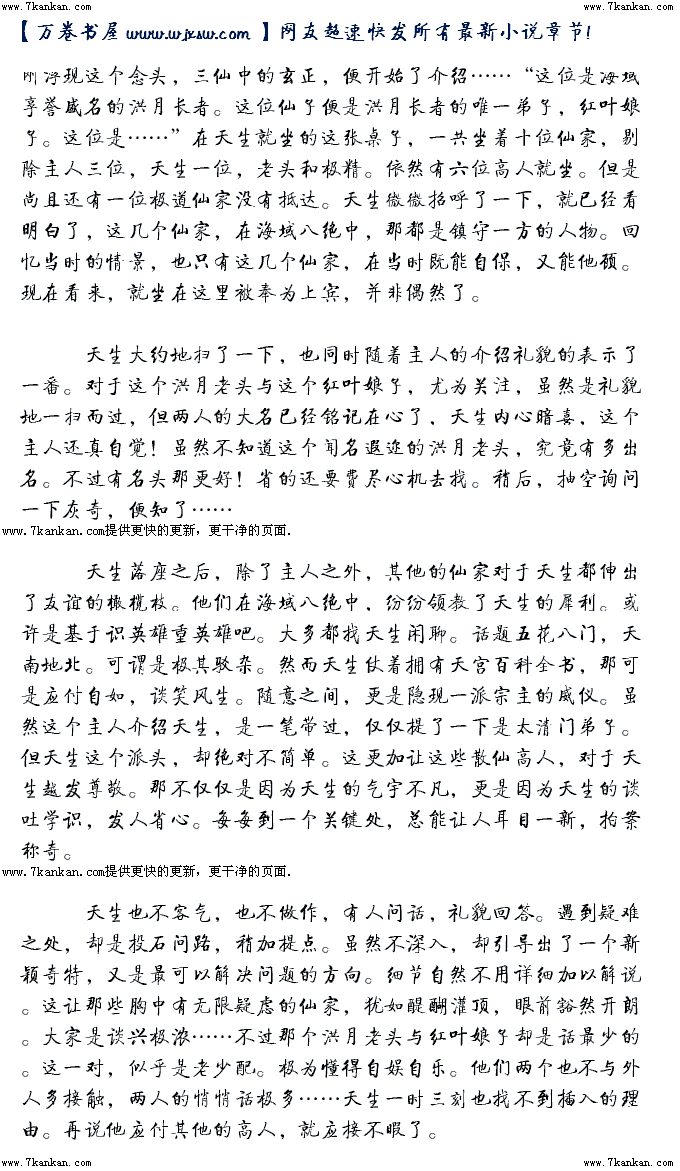 www.7kankan.com www.7kankan.com
【万卷书屋 www.wjxsw.com 】网友超速快发所有最新小说章节!
刚浮现这个念头，三仙中的玄正，便开始了介绍……“这位是海域
享誉威名的洪月长者。这位仙子便是洪月长者的唯一弟子，红叶娘
子。这位是……”在天生就坐的这张桌子，一共坐着十位仙家，剔
除主人三位，天生一位，老头和极精。依然有六位高人就坐。但是
尚且还有一位极道仙家没有抵达。天生微微招呼了一下，就已经看
明白了，这几个仙家，在海域八绝中，那都是镇守一方的人物。回
忆当时的情景，也只有这几个仙家，在当时既能自保，又能他顾。
现在看来，就坐在这里被奉为上宾，并非偶然了。
天生大约地扫了一下，也同时随着主人的介绍礼貌的表示了
一番。对于这个洪月老头与这个红叶娘子，尤为关注，虽然是礼貌
地一扫而过，但两人的大名已经铭记在心了，天生内心暗喜，这个
主人还真自觉！虽然不知道这个闻名遐迩的洪月老头，究竟有多出
名。不过有名头那更好！省的还要费尽心机去找。稍后，抽空询问
一下灰奇，便知了……
www.7kankan.com提供更快的更新，更干净的页面.
天生落座之后，除了主人之外，其他的仙家对于天生都伸出
了友谊的橄榄枝。他们在海域八绝中，纷纷领教了天生的犀利。或
许是基于识英雄重英雄吧。大多都找天生闲聊。话题五花八门，天
南地北。可谓是极其驳杂。然而天生仗着拥有天宫百科全书，那可
是应付自如，谈笑风生。随意之间，更是隐现一派宗主的威仪。虽
然这个主人介绍天生，是一笔带过，仅仅提了一下是太清门弟子。
但天生这个派头，却绝对不简单。这更加让这些散仙高人，对于天
生越发尊敬。那不仅仅是因为天生的气宇不凡，更是因为天生的谈
吐学识，发人省心。每每到一个关键处，总能让人耳目一新，拍案
称奇。
www.7kankan.com提供更快的更新，更干净的页面.
天生也不客气，也不做作，有人问话，礼貌回答。遇到疑难
之处，却是投石问路，稍加提点。虽然不深入，却引导出了一个新
颖奇特，又是最可以解决问题的方向。细节自然不用详细加以解说
。这让那些胸中有无限疑虑的仙家，犹如醍醐灌顶，眼前豁然开朗
。大家是谈兴极浓……不过那个洪月老头与红叶娘子却是话最少的
。这一对，似乎是老少配。极为懂得自娱自乐。他们两个也不与外
人多接触，两人的悄悄话极多……天生一时三刻也找不到插入的理
由。再说他应付其他的高人，就应接不暇了。
www.7kankan.com www.7kankan.com